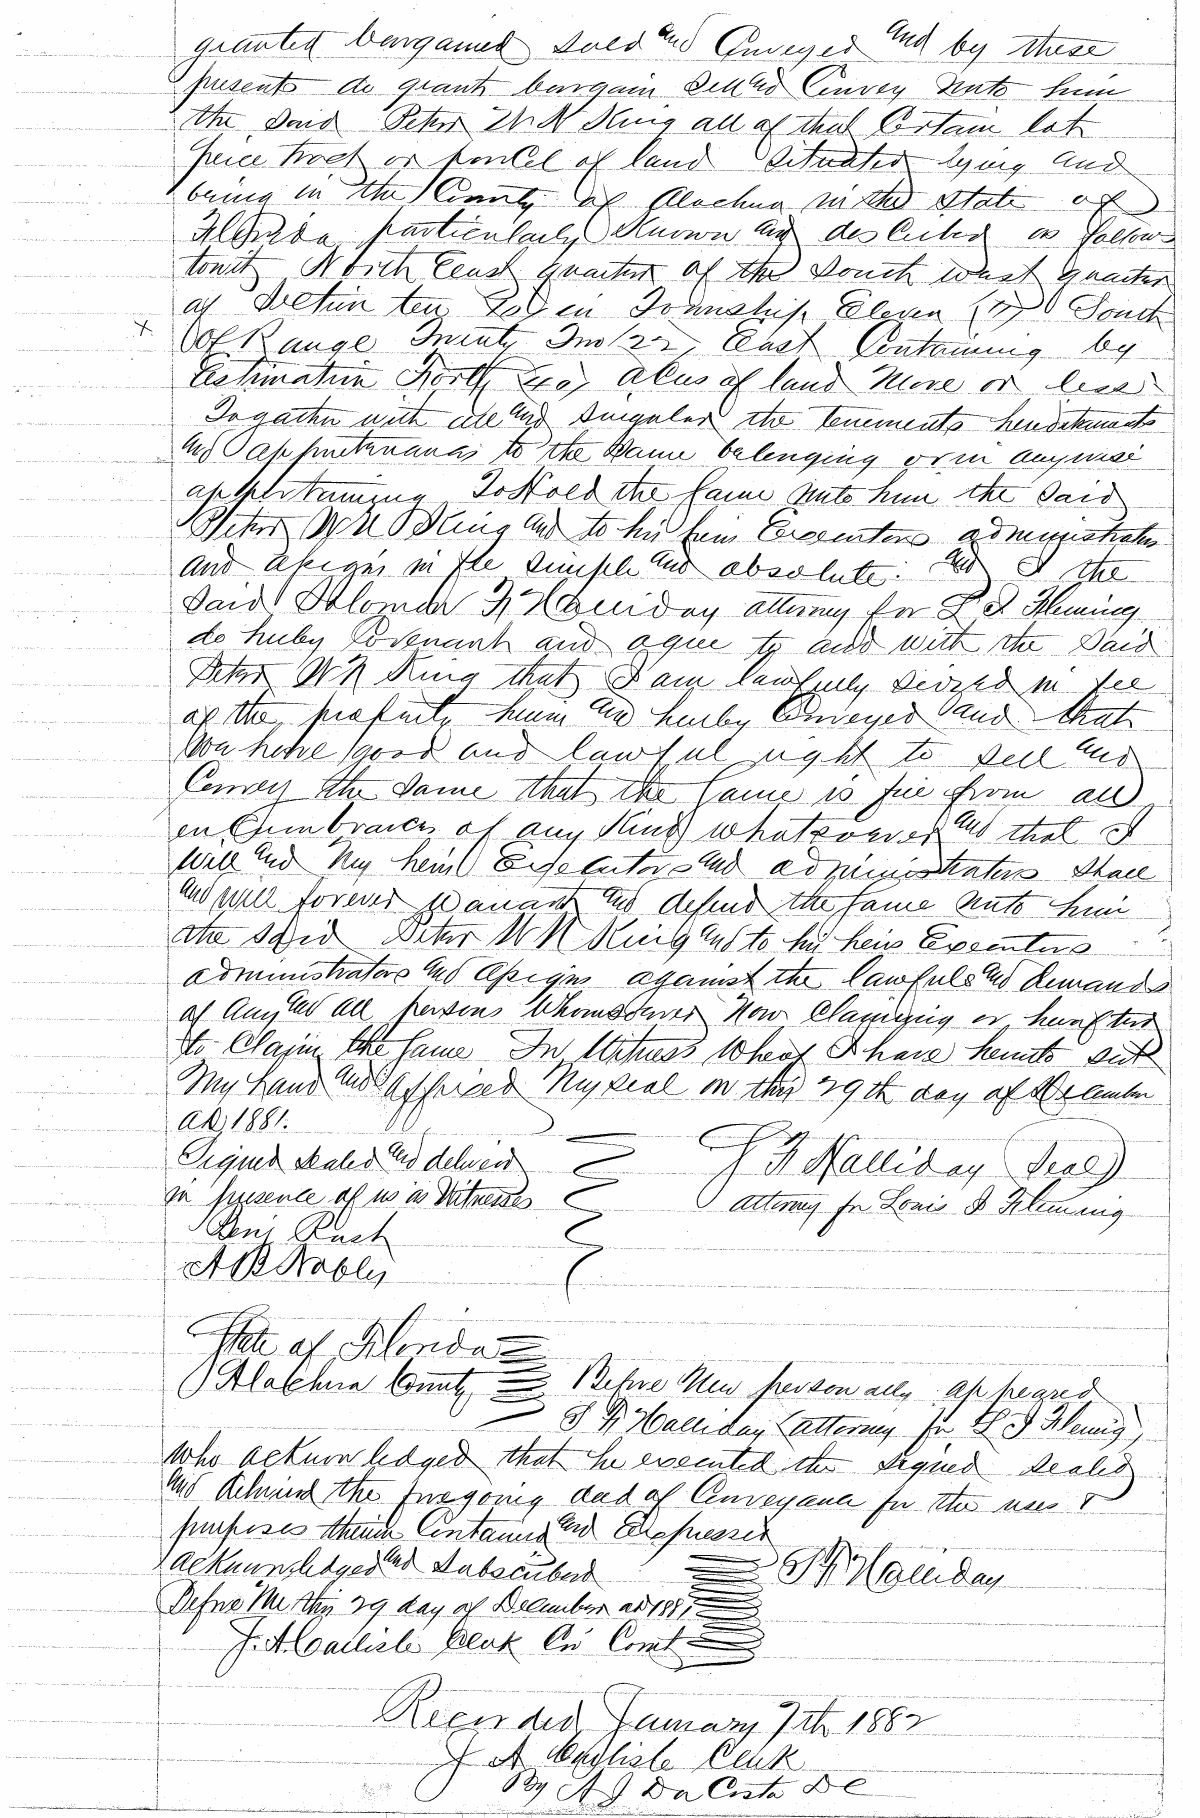 granted bargained sold and Conveyed and by these
presents do grant bargain sell and Convey unto him
the said Peter W N King all of that Certain lot
peice tract or parcel of land situated lying and
being in the County of Alachua in the State of
Florida particularly Known and described as follows
towit North East quarter of the South west quarter
of Section ten (10) in Township Eleven (11) South
x
Of Range Twenty Two (22) East Containing by
Estimation Forty (40) Acres of land More or less
Togather with all and singular the tenements hereditaments
and appurtenances to the same belonging or in anywise
appertaining To Hold the same unto him the said
Peter W N King and to his heirs Executors administrators
and assigns in fee simple and absolute. And I the
said Solomon F Halliday attorney for L I Fleming
do hereby Covenant and agree to and with the said
Peter W N King that I am lawfully seized in fee
of the property herein and hereby Conveyed and that
have good and lawful right to sell and
Convey the same that the same is free from all
enCumbrances of any Kind whatsoever and that I
will and My heirs Executors and administrators shall
and will forever warrant and defend the same unto him
the said Peter W N King and to his heirs Executors
administrators and assigns against the lawfull and demands
of Any and all persons Whomsoever Now Claiming or hereafter
to Claim the same In Witness Wheof I have hereto set
My hand and affixed My seal on this 29th day of December
AD 1881.
Signed sealed and delivered
in presence of us as Witnesses
Benj Rush
A B Nobles
S F Halliday (Seal)
attorney for Louis I Fleming
State of Florida
Alachua County Before Mee personally appeared
S F Halliday (attorney for L I Fleming)
Who acknowledged that he executed the signed sealed
and delivered the foregoing deed of Conveyance for the uses &
purposes therein Contained and Expressed
Acknowledged and Subscribed
Before Me this 29 day of December AD 1881
J. A. Carlisle Clerk Cir Court
S F Halliday
Recorded January 7th 1882
J A Carlisle Clerk
By A J Da Costa DC